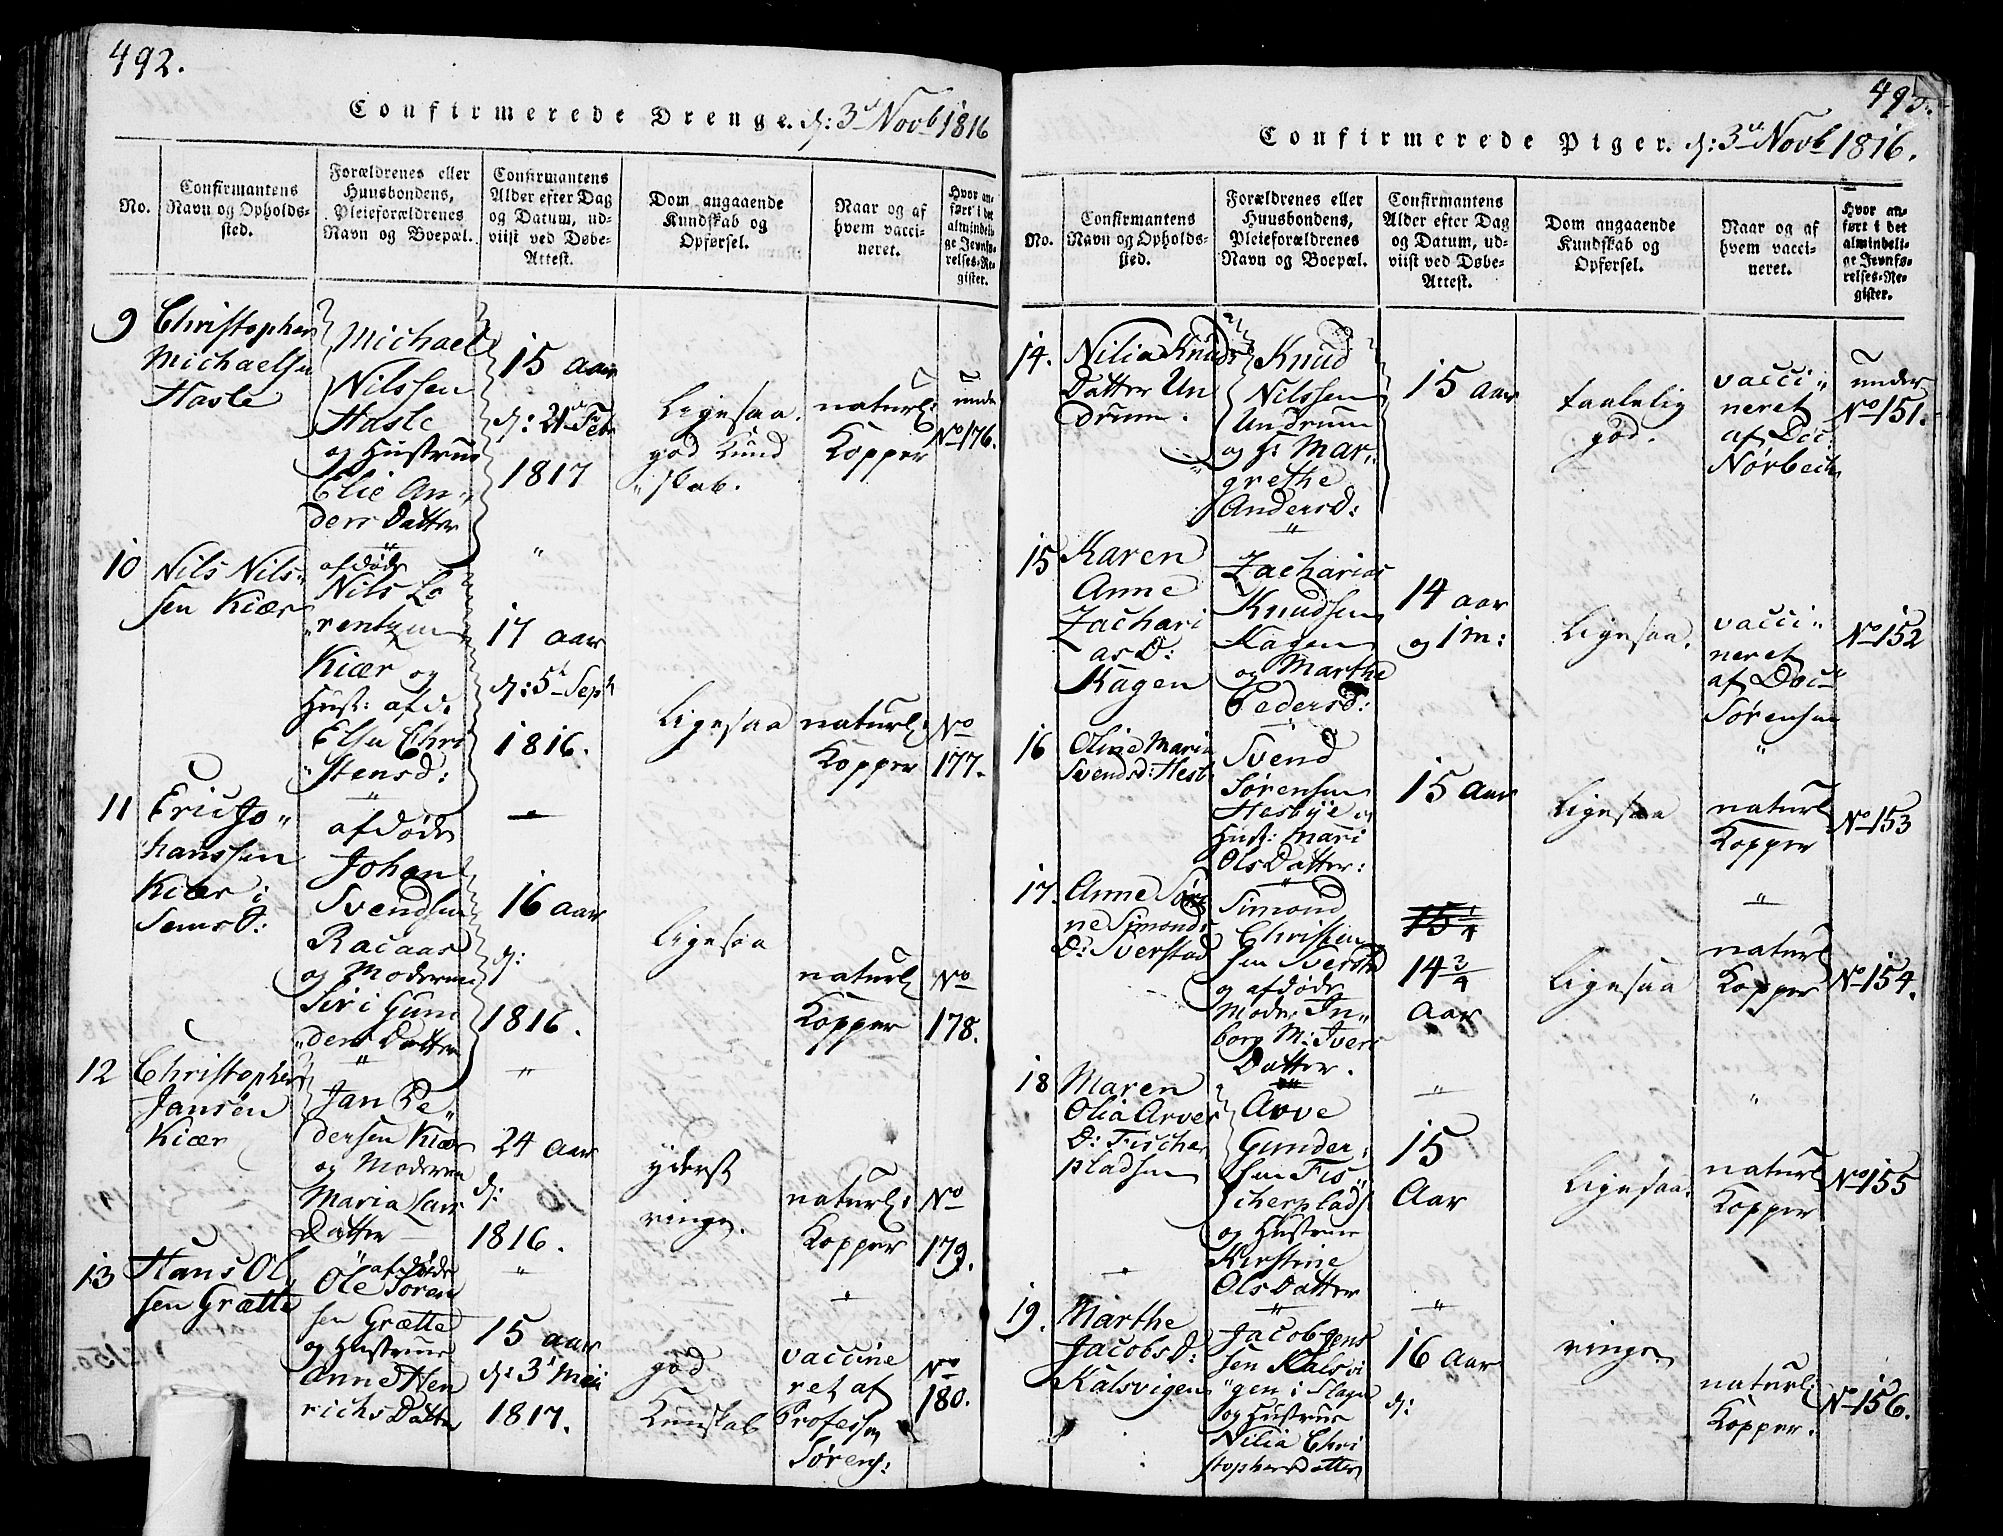 492.
Confirmerede Drenge. d: 3d Novb 1816
No.
Confirmantens
Navn og Opholds-
sted.
Forældrenes eller
Huusbondens,
Pleieforældrenes
Navn og Boepæl.
Confirmantens
Alder efter Dag
og Datum, ud-
viist ved Døbe-
Attest.
Dom angaaende
Kundskab og
Opførsel.
Naar og af
hvem vacci-
neret.
Hvor an-
ført i det
almindeli-
ge Jevnfø-
relses-Re-
gister.
9
Christopher
Michaelsen
Hasle
Michael
Nilssen
Hasle
og Hustrue
Elie An-
ders Datter
15 aar
d: 21d Feb
1817
Ligesaa
god Kund
skab.
naturl:
Kopper
unde
No 176.
10
Nils Nils-
sen Kiær
afdøde
Nils Lo
rentzen
Kiær og
Hust: afd:
Else Chri
stensd:
17 aar
d: 5d Sept
1816.
Ligesaa
naturl:
Kopper
No
177.
11
Eric Jo"
hanssen
Kiær i
Sems O:
afdøde
Johan
Svendsen
Racaas
og Moderen
Siri Gun
ders Datter
16 aar
d:
1816.
Ligesaa
naturl
Kopper
No
178.
12
Christopher
Jansen
Kiær
Jan Pe"
dersen Kiær
og Moderen
Maria Lars
Datter
24 aar
d:
1816.
yderst
ringe.
naturl:
Kopper
No
179.
13
Hans Ol
sen Grætte
afdøde
Ole Soren
sen Grætte
og Hustrue
Anne Hen
richs Datter
15 aar
d: 3d Mai
1817.
god
Kunskab
vaccine
ret af
Professor
Sørens:
No
180.
493.
Confirmerede Piger. d: 3d Novb 1816.
No.
Confirmantens
Navn og Opholds-
sted.
Forældrenes eller
Huusbondens,
Pleieforældrenes
Navn og Boepæl.
Confirmantens
Alder efter Dag
og Datum, ud-
viist ved Døbe-
Attest.
Dom angaaende
Kundskab og
Opførsel.
Naar og af
hvem vacci-
neret.
Hvor an-
ført i det
almindeli-
ge Jevnfø-
relses-Re-
gister.
14.
Nilia Knuds
Datter Un
drum.
Knud
Nilssen
Undrum
og H: Mar-
grethe
Andersd:
15 aar
taalelig
god.
vacci"
neret
af Doc:
Nørbech
under
No 151.
15
Karen
Anne
Zachari
as D:
Kagen
Zacharias
Knudsen
Kagen
og Marthe
Pedersd:
14 aar
og 1 m:
Ligesaa.
vacci"
neret
af Doc"
Sørensen
No 152
16
Oline Maria
Svendsd: Hesb
Svend
Sørensen
Hesbye og
Hust: Mari
Ols Datter:
15 aar
Ligesaa
naturl
Kopper
No 153
17.
Anne Søri
ne Simonds
D: Sverstad
Simond
Christen
sen Sverstad
og afdøde
Moder In"
borg M: Ivers
Datter.
15 1/4
14 3/4
Aar
Ligesaa
naturl
Kopper
No 154.
18
Maren
Olia Arves
D: Fischer
pladsen
Arve
Gunder-
sen Fis-
cherplads
og Hustrue
Kirstine
Ols Datter
15
Aar
Ligesaa.
naturl
Kopper
No 155
19.
Marthe
Jacobs D:
Kalsvigen
Jacob Jens
sen Kalsvi
gen i Slagen
og Hustrue
Nilia Chri
stophersdatter
16 aar
d:
ringe.
naturl:
Kopper.
No 156.